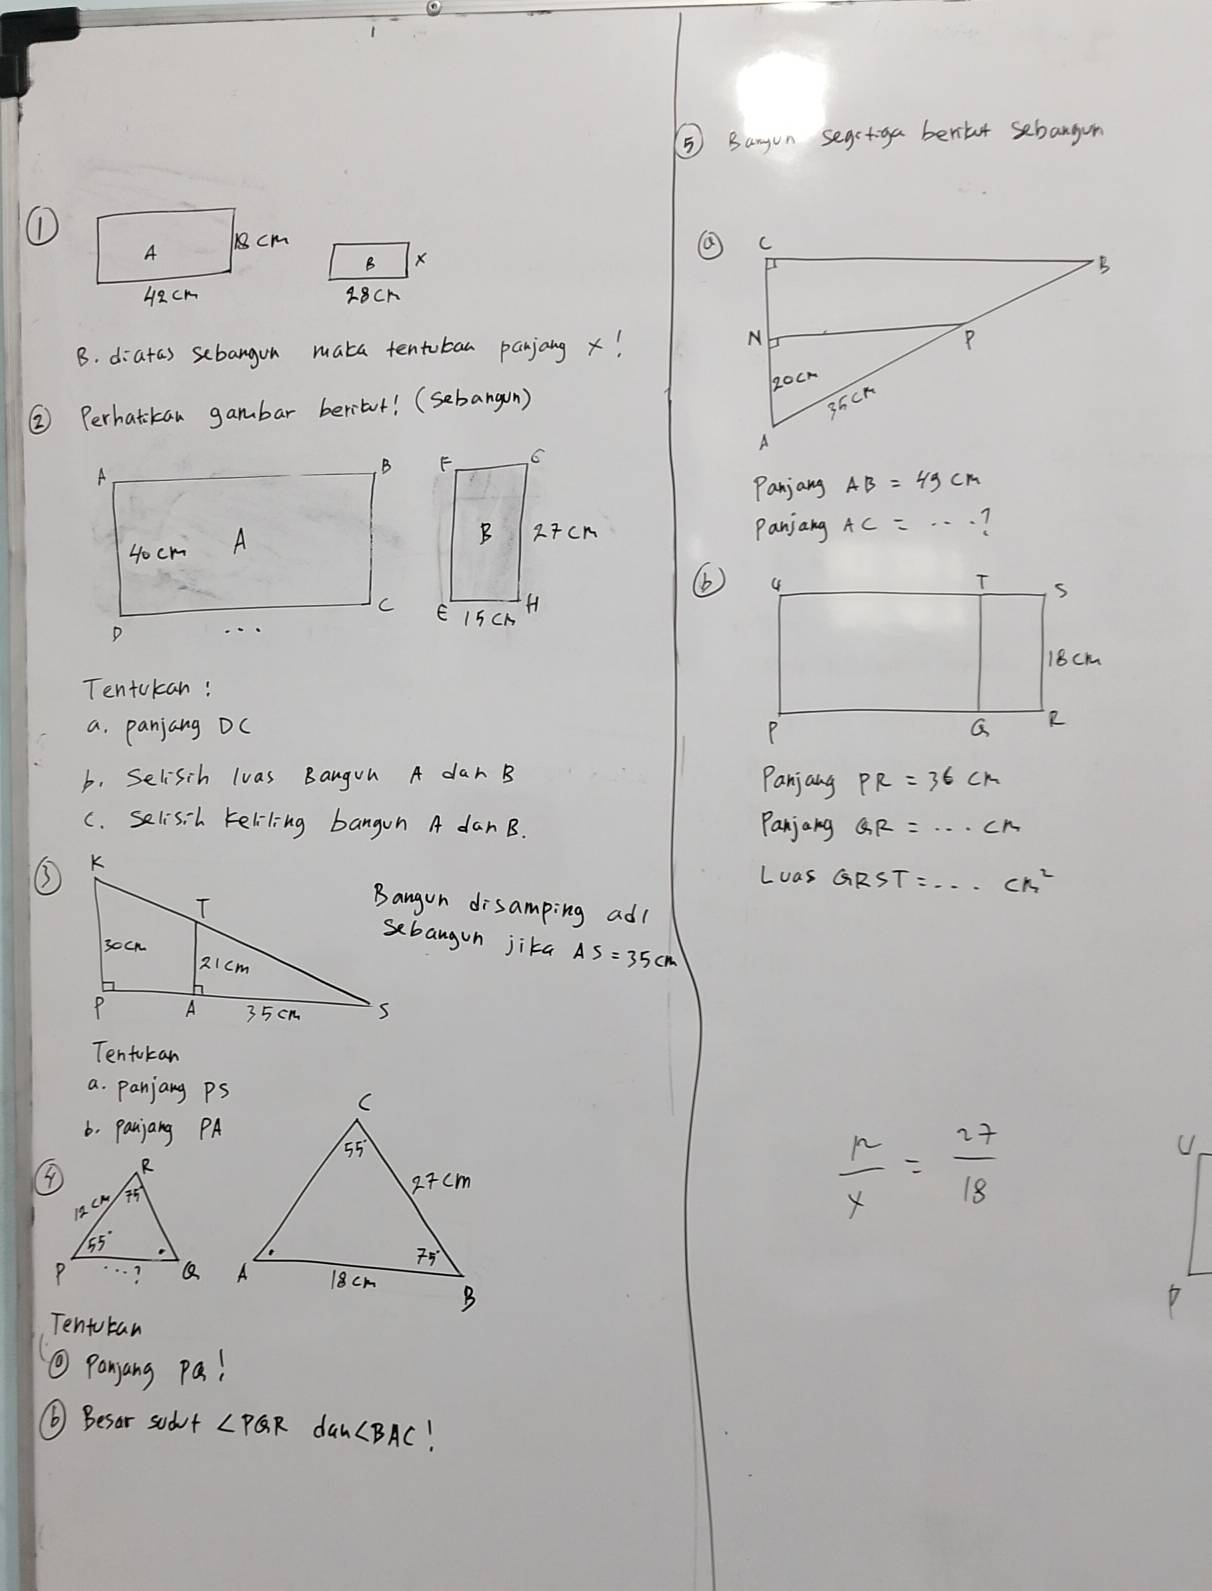 ①
A
18 cm
42 cm
B
x
28 cm
B. diatas sebangun maka tentukan panjang x!
② Perhatikan gambar berikut! (sebangun)
A
B
40 cm
A
D
...
C
F
G
B
27 cm
E
15 cm
H
Tentukan :
a. panjang DC
b. Selisih luas Bangun A dan B
c. Selisih keliling bangun A dan B.
③
K
T
30 cm
21 cm
P
A
35 cm
S
Bangun disamping adl
sebangun jika AS = 35 cm
Tentukan
a. panjang PS
b. panjang PA
④
R
12 cm
75°
55°
P
...?
Q
C
55°
27 cm
75°
A
18 cm
B
Tentukan
ⓐ Panjang PQ!
ⓑ Besar sudut ∠PQR dan ∠BAC!
⑤ Bangun segitiga berikut sebangun
ⓐ
C
B
N
P
20 cm
35 cm
A
Panjang AB = 49 cm
Panjang AC = ....?
ⓑ
U
T
S
18 cm
P
Q
R
Panjang PR = 36 cm
Panjang QR = .... cm
Luas QRST = .... cm²
27
= 
x
18
U
P